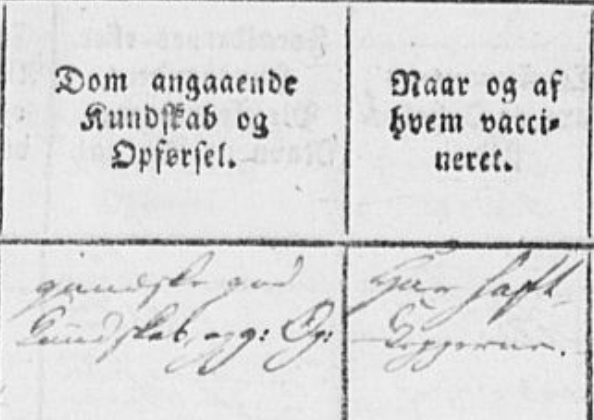 Dom angaaende
Kundskab og
Opførsel.
Naar og af
hvem vacci-
neret.
gandske god
Kundskab, og g: Op:
Har haft
Kopperne.